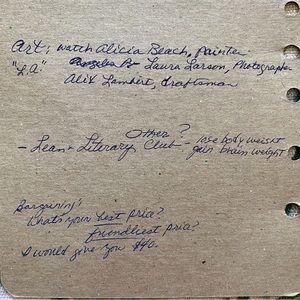 Art: watch Alicia Beach, painter
"L.A." Laura Larson, Photographer
Alix Lambert, draftsman
Other?
- Lean + Literary Club - lose body weight
gain brain weight
Bargaining:
What's your best price?
friendliest price?
I would give you $40.